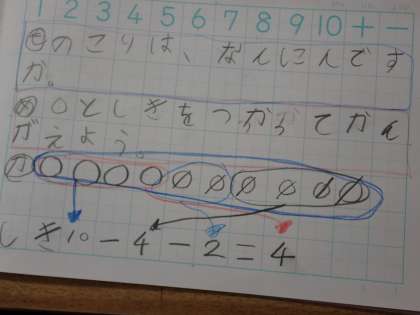 1 2 3 4 5 6 7 8 9 10 + −
のこりは、なんにんです
か。
○としきをつかってかん
がえよう。
しき10−4−2=4